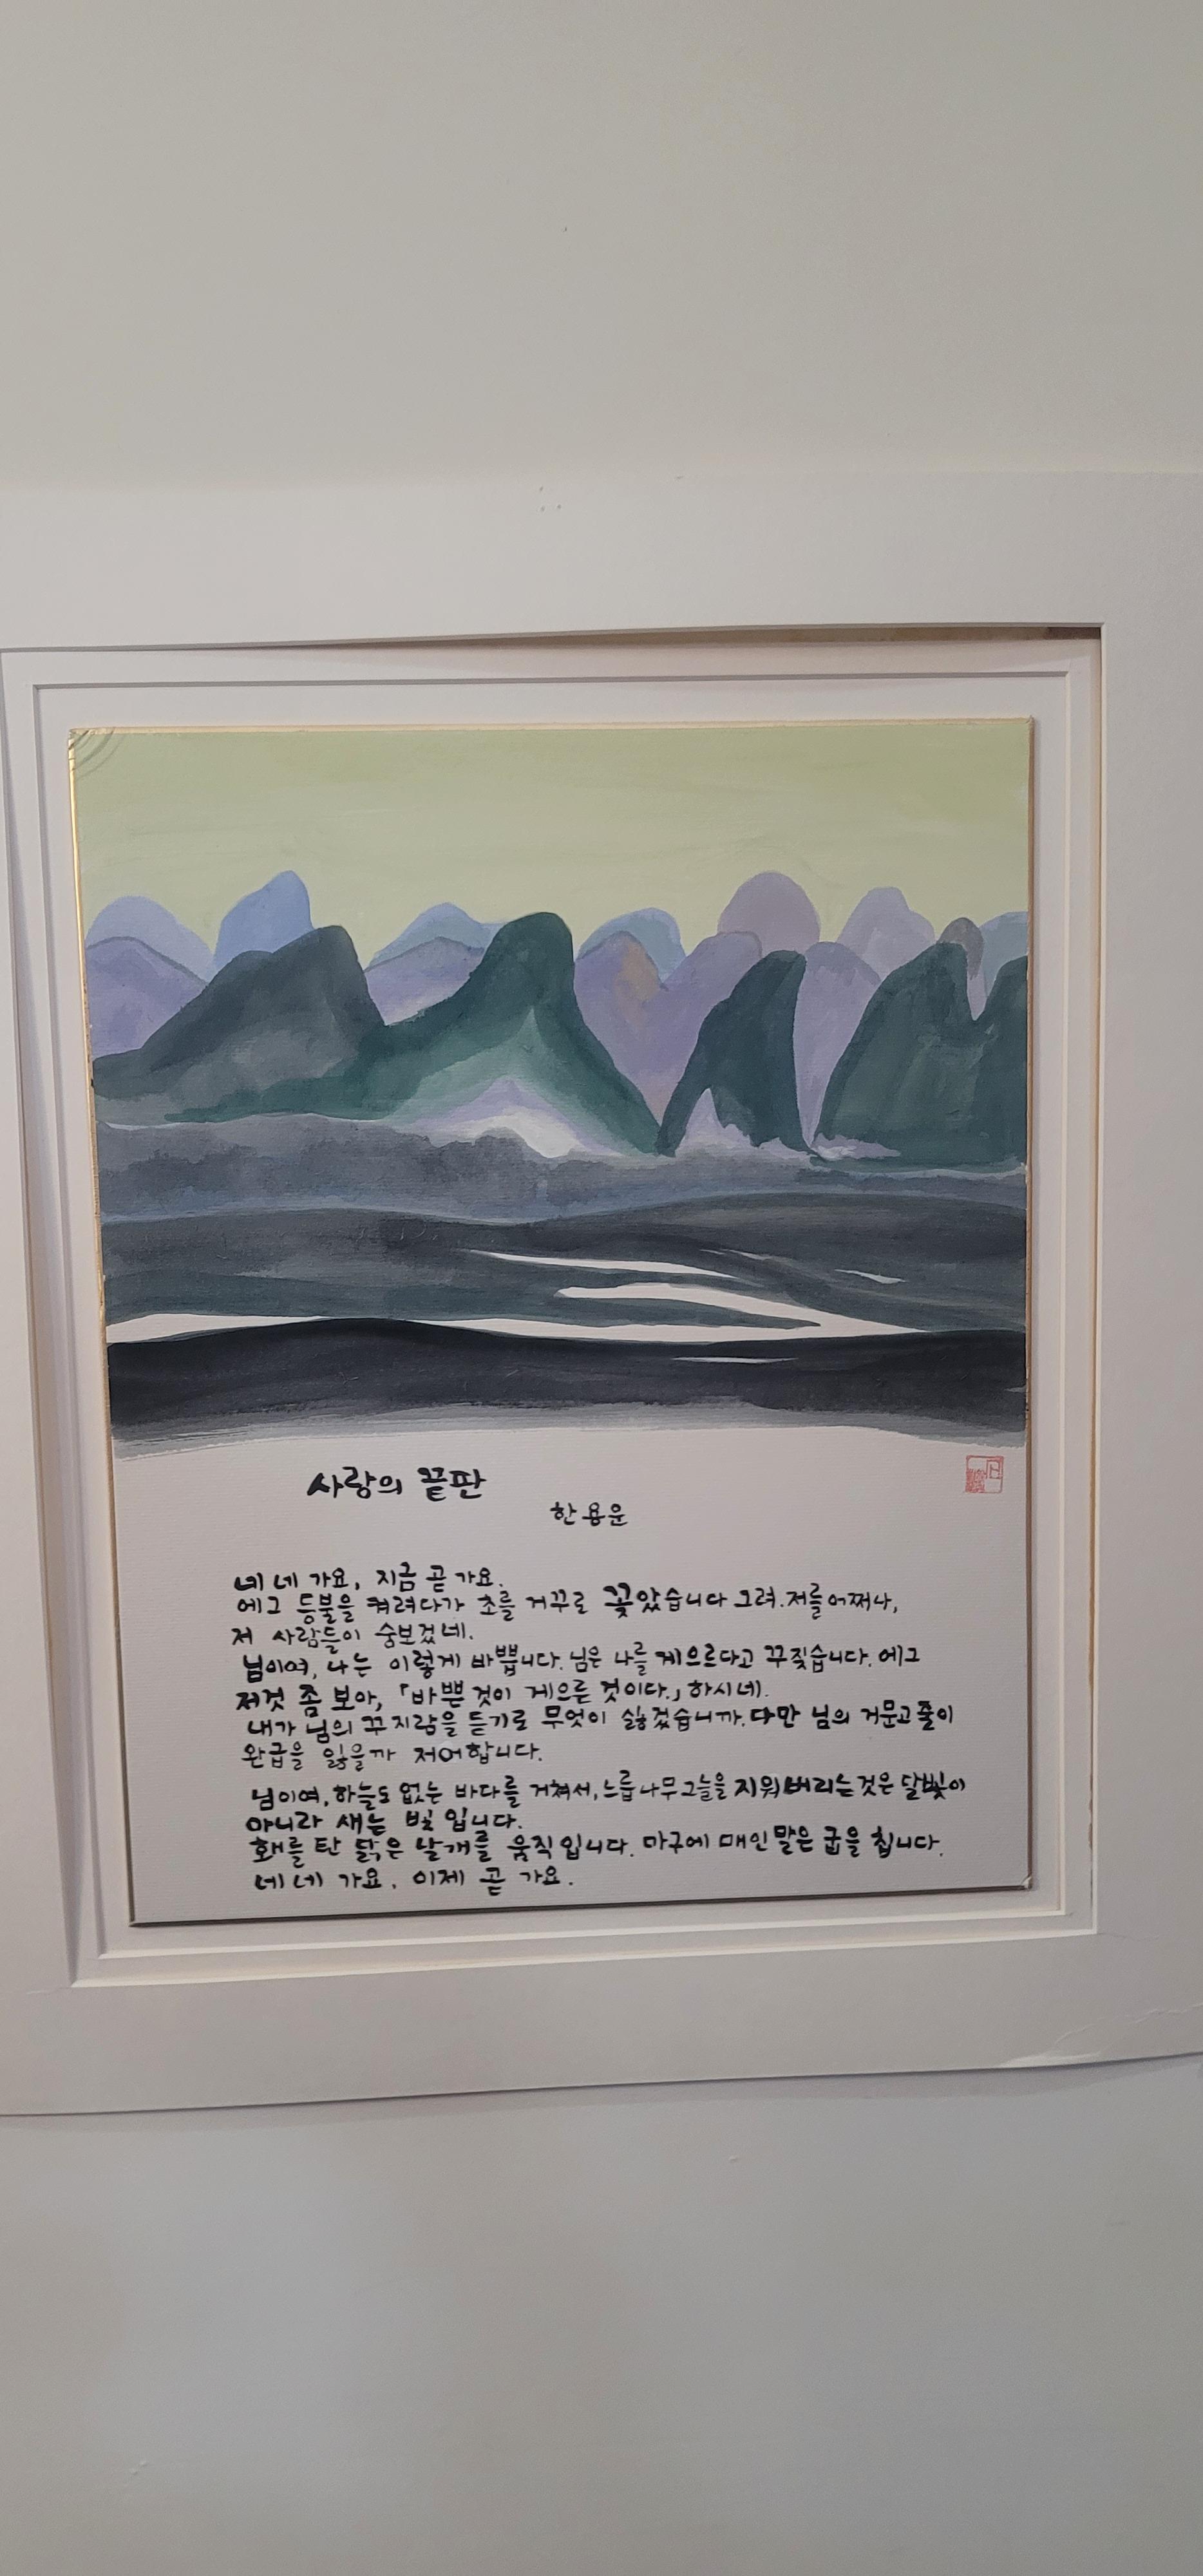 사랑의 끝판
한용운
네 네 가요, 지금 곧 가요.
에그 등불을 켜려다가 초를 거꾸로 꽂았습니다 그려. 저를 어쩌나,
저 사람들이 숭보겠네.
님이여, 나는 이렇게 바쁩니다. 님은 나를 게으르다고 꾸짖습니다. 에그
저것 좀 보아, 「바쁜 것이 게으른 것이다.」 하시네.
내가 님의 꾸지람을 듣기로 무엇이 싫겠습니까. 다만 님의 거문고 줄이
완급을 잃을까 저어합니다.
님이여, 하늘도 없는 바다를 거쳐서, 느릅나무 그늘을 지워버리는 것은 달빛이
아니라 새는 빛입니다.
홰를 탄 닭은 날개를 움직입니다. 마구에 매인 말은 굽을 칩니다.
네 네 가요, 이제 곧 가요.